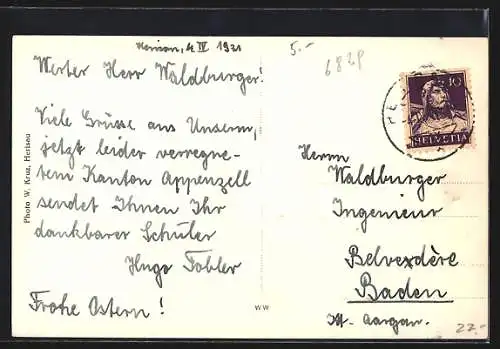 4 IV 1931
5.-
Werter Herr Waldburger!
Viele Grüsse aus Unserm,
jetzt leider verregne-
tem Kanton Appenzell
sendet Ihnen Ihr
dankbarer Schüler
Hugo Tobler
Frohe Ostern!
Photo W. Kruz, Herisau
WW
10
HELVETIA
Herrn
Waldburger
Ingenieur
Belvedère
Baden
Kt. Aargau.
22.-